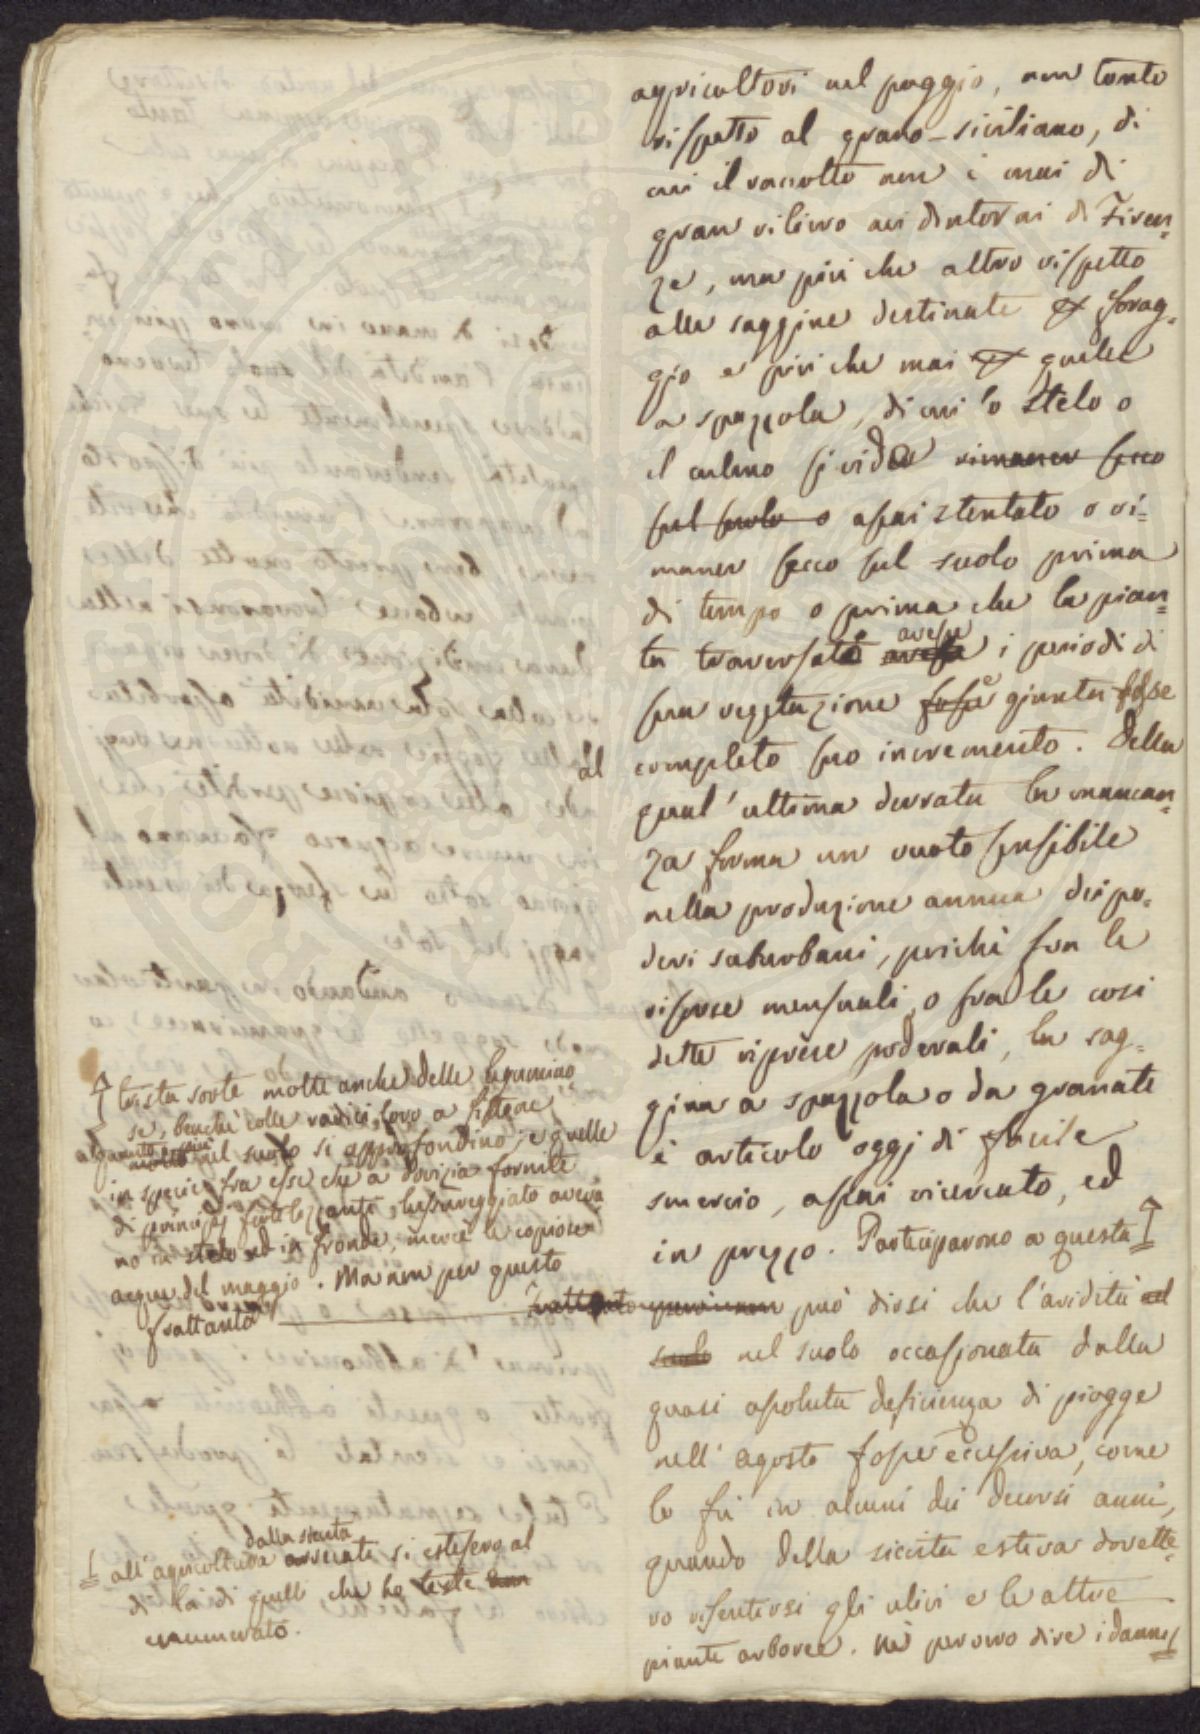 agricoltori nel poggio, non tanto
rispetto al grano-siciliano, di
cui il raccolto non è mai di
gran rilievo nei dintorni di Firen-
ze, ma più che altro rispetto
alle saggine destinate a forag-
gio e più che mai quelle
a spazzola, di cui lo stelo o
il culmo si vide rimaner secco
sul suolo o assai stentato o ri-
maner secco sul suolo prima
di tempo o prima che la pian-
ta traversati avesse i periodi di
sua vegetazione fosse giunta fosse
al completo suo incremento. Della
qual'ultima derrata la mancan-
za forma un vuoto sensibile
nella produzione annua dei po-
deri suburbani, perchè fra le
risposte mensuali, o fra le così
dette riprese poderali, la sag-
gina a spazzola o da granate
è articolo oggi di facile
smercio, assai ricercato, ed
in prezzo. Parteciparono a questa
trista sorte molte anche delle legumino
se, benchè colle radici loro a fittone
alquanto nel suolo si approfondino; e quelle
in specie fra esse che a dovizia fornite
di principj fertilizzanti, lussureggiato aveva
no in stelo ed in fronde, mercè le copiose
acque del maggio. Ma non per questo
frattanto
può dirsi che l'aridità
suolo nel suolo occasionata dalla
quasi assoluta deficienza di piogge
nell'agosto fosse eccessiva, come
lo fu in alcuni dei decorsi anni,
quando della siccità estiva dovette-
ro risentirsi gli ulivi e le altre
piante arboree. Nè per ciò dire i danni
all'agricoltura dalla siccità arrecati si estesero al
di là di quelli che ho teste
enumerato.